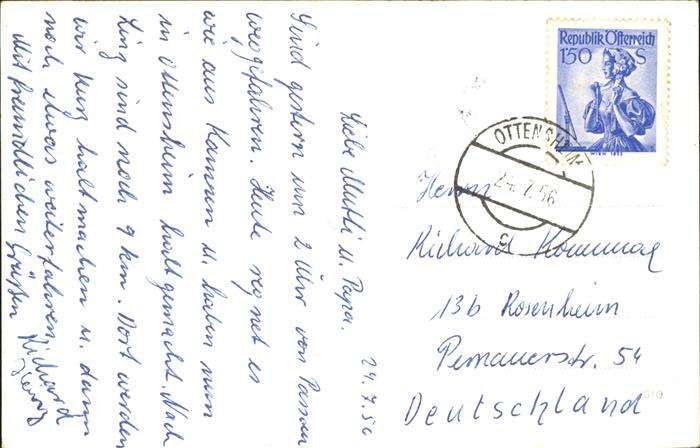 Liebe Mutti u. Papa. 24.7.56
Sind gestern um 2 Uhr von Passau
weggefahren. Heute regnet es
wie aus Kannen u. haben nun
in Ottensheim halt gemacht. Nach
Linz sind noch 9 km. Dort werden
wir kurz halt machen u. dann
noch etwas weiterfahren.
Mit freundlichen Grüßen Richard
Republik Österreich
1'50 S
WIEN
OTTENSHEIM
24.7.56
Herrn
Richard Kommag
13b Rosenheim
Pernauerstr. 54
Deutschland